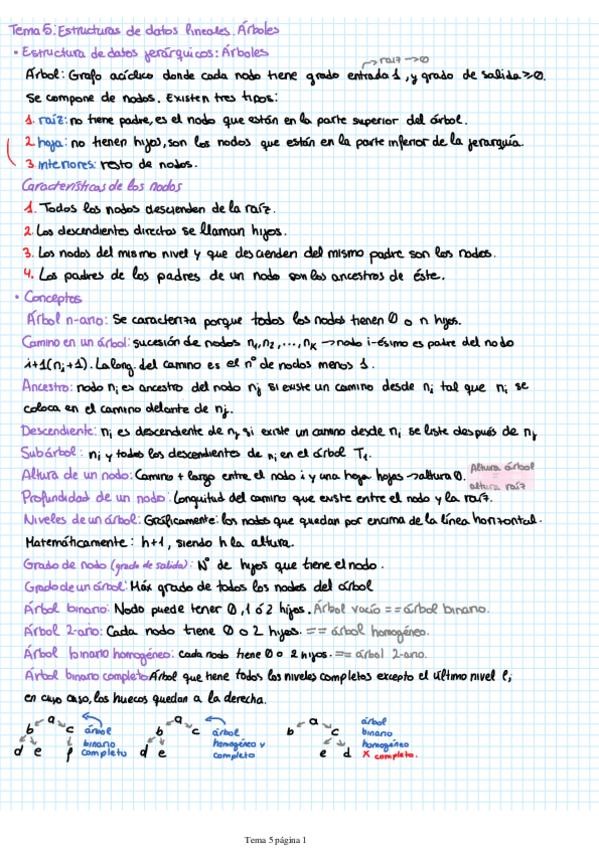 Tema 5: Estructuras de datos lineales. Árboles
• Estructura de datos jerárquicos: Árboles
→ raíz → 0
Árbol: Grafo acíclico donde cada nodo tiene grado entrada 1, y grado de salida ≥ 0.
Se compone de nodos. Existen tres tipos:
1. raíz: no tiene padre, es el nodo que están en la parte superior del árbol.
2. hoja: no tienen hijos, son los nodos que están en la parte inferior de la jerarquía
3. interiores: resto de nodos.
Características de los nodos
1. Todos los nodos descienden de la raíz.
2. Los descendientes directos se llaman hijos.
3. Los nodos del mismo nivel y que descienden del mismo padre son los nodos.
4. Los padres de los padres de un nodo son los ancestros de éste.
• Conceptos
Árbol n-ario: Se caracteriza porque todos los nodos tienen 0 o n hijos.
Camino en un árbol: sucesión de nodos n1, n2, ..., nK → nodo i-ésimo es padre del nodo
i+1 (ni+1). La long. del camino es el nº de nodos menos 1.
Ancestro: nodo ni es ancestro del nodo nj si existe un camino desde ni tal que ni se
coloca en el camino delante de nj.
Descendiente: ni es descendiente de nj si existe un camino desde ni se liste después de nj
Subárbol: ni y todos los descendientes de ni en el árbol T1.
Altura de un nodo: Camino + largo entre el nodo i y una hoja hojas → altura 0. Altura árbol = altura raíz
Profundidad de un nodo: Longuitud del camino que existe entre el nodo y la raíz.
Niveles de un árbol: Gráficamente: los nodos que quedan por encima de la línea horizontal.
Matemáticamente: h+1, siendo h la altura.
Grado de nodo (grado de salida): Nº de hijos que tiene el nodo.
Grado de un árbol: Máx grado de todos los nodos del árbol
Árbol binario: Nodo puede tener 0, 1 ó 2 hijos. Árbol vacío == árbol binario.
Árbol 2-ario: Cada nodo tiene 0 o 2 hijos. == árbol homogéneo.
Árbol binario homogéneo: cada nodo tiene 0 o 2 hijos. == árbol 2-ario.
Árbol binario completo: Árbol que tiene todos los niveles completos excepto el último nivel l,
en cuyo caso, los huecos quedan a la derecha.
a
b c
d e f
árbol
binario
completo
a
b c
d e
árbol
homogéneo y
completo
a
b c
e d
árbol
binario
homogéneo
X completo.
Tema 5 página 1